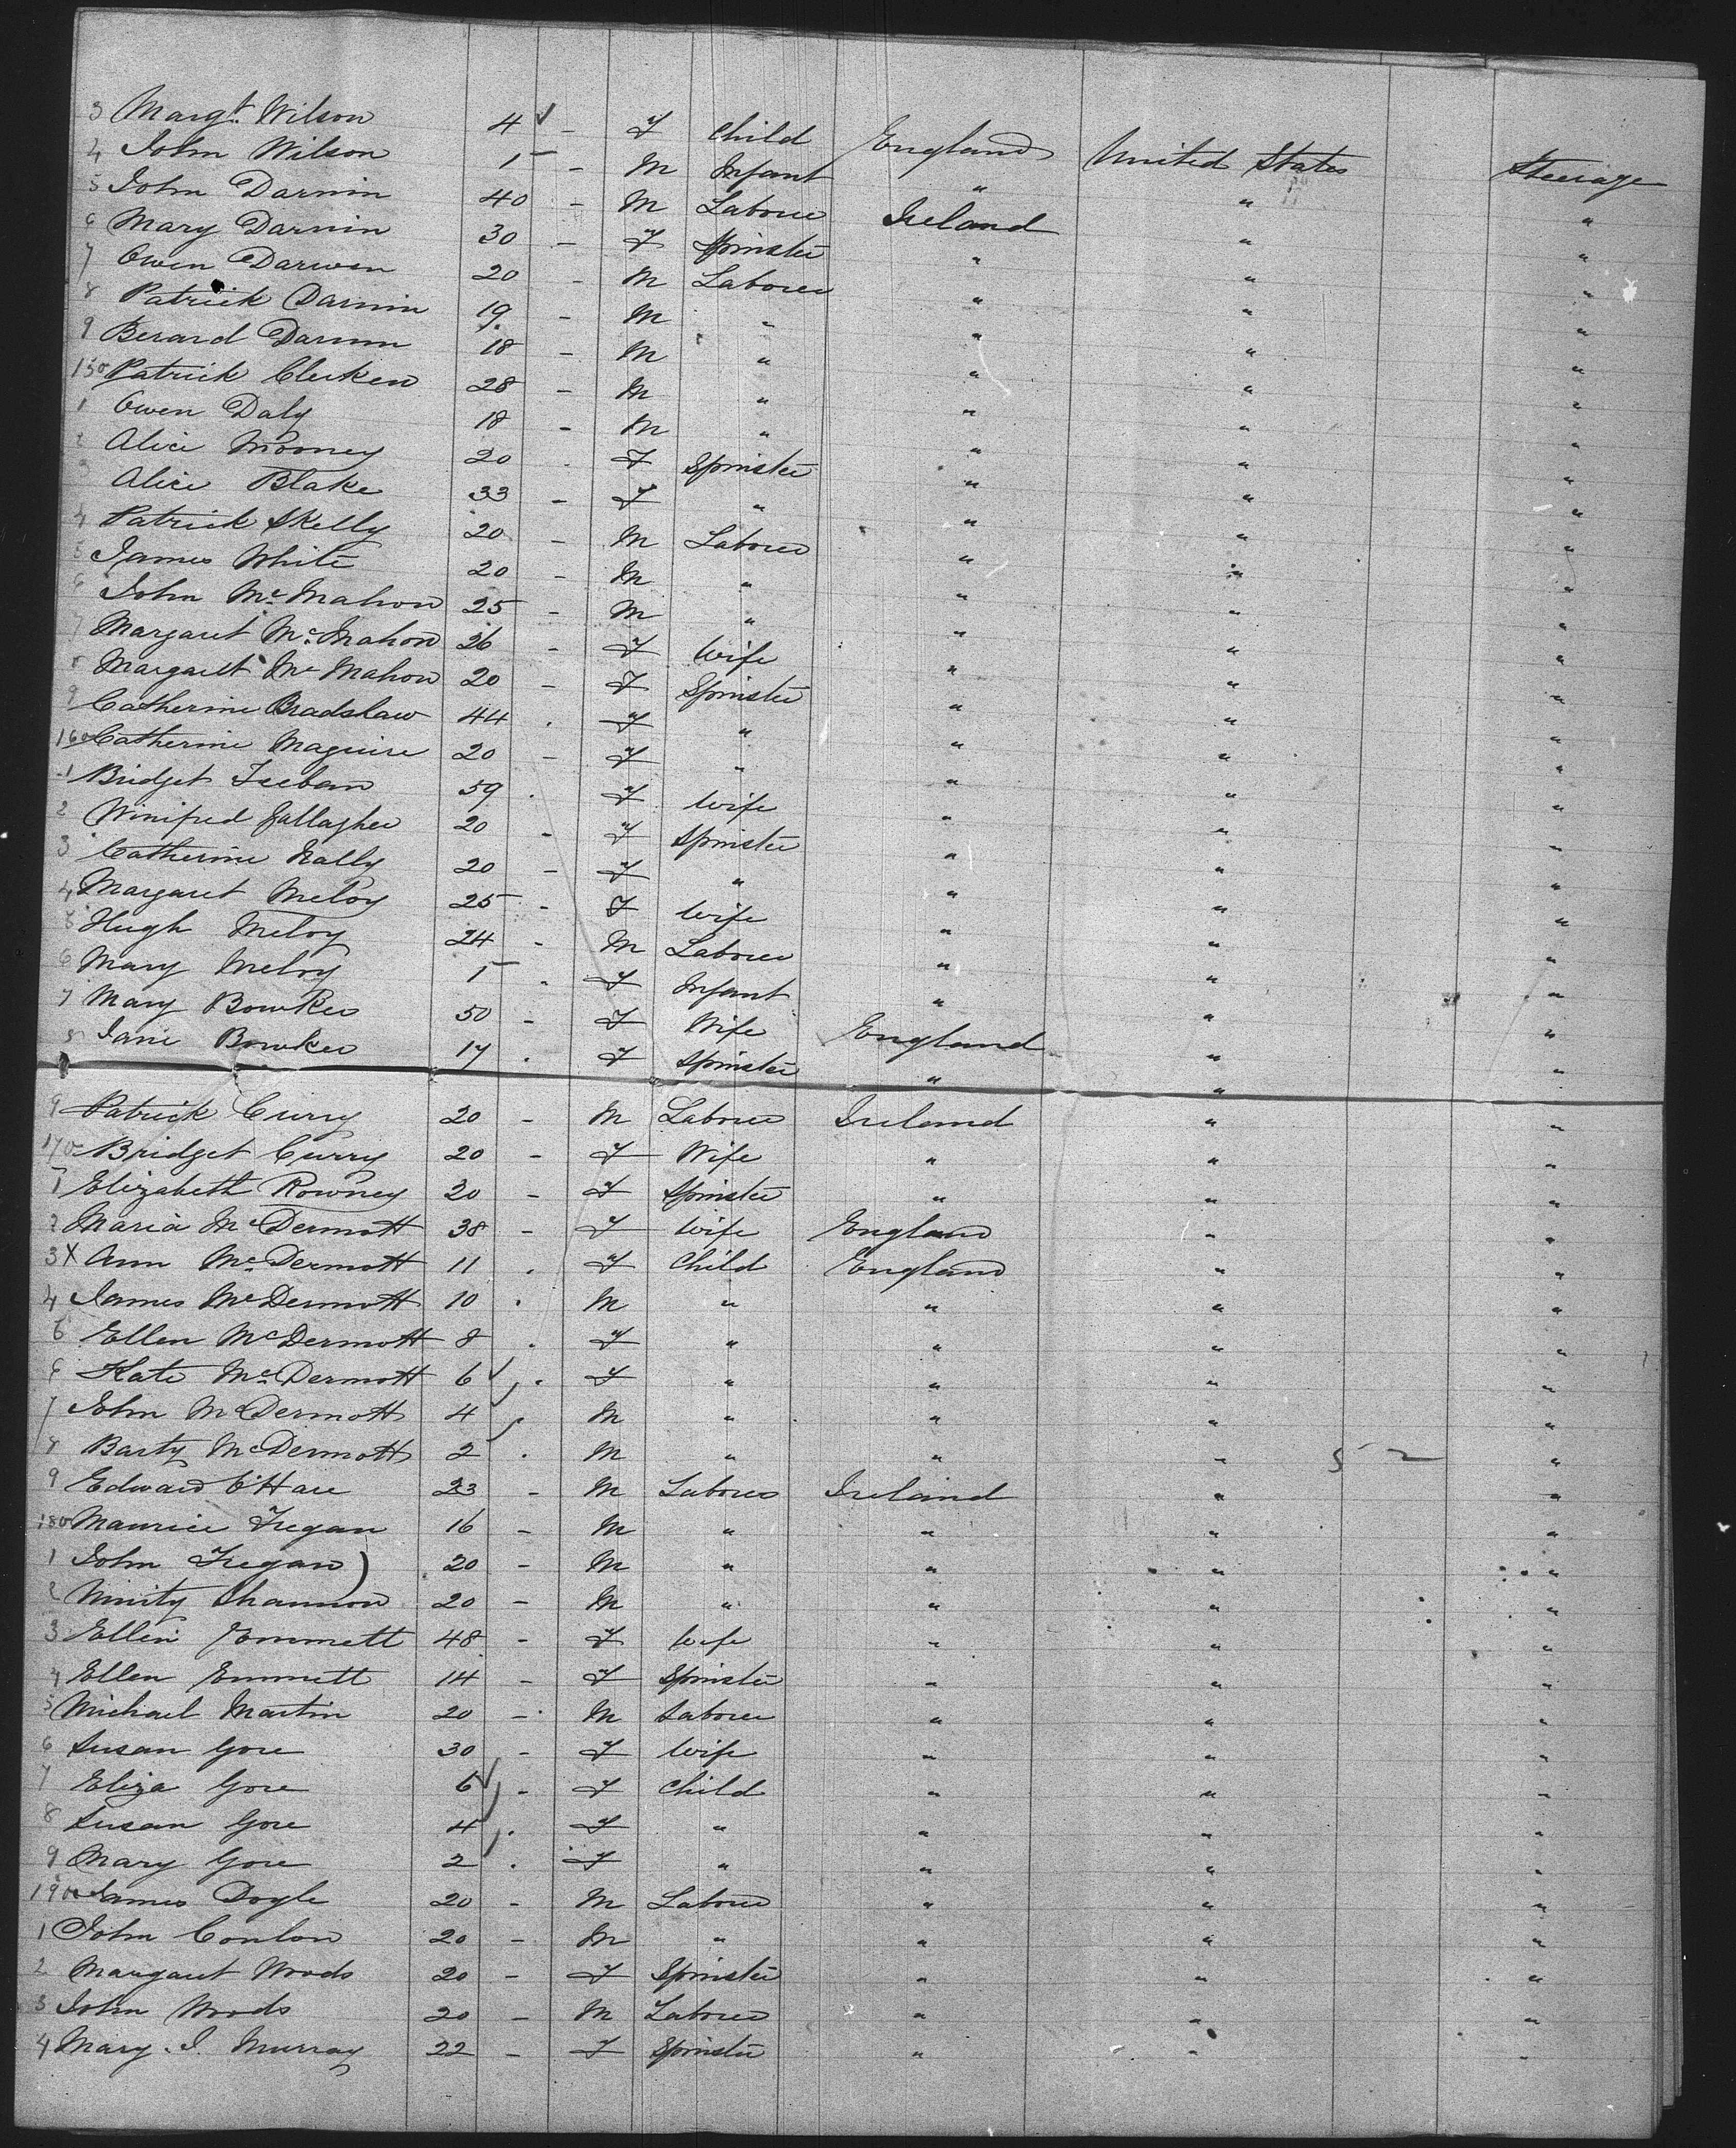 3 Margt. Wilson 4 - F Child England United States Steerage
4 John Wilson 1 - M Infant " " "
5 John Darnin 40 - M Laborer Ireland " "
6 Mary Darnin 30 - F Spinster " " "
7 Owen Darwen 20 - M Laborer " " "
8 Patrick Darnin 19 - M " " " "
9 Berard Darnin 18 - M " " " "
150 Patrick Clerken 28 - M " " " "
1 Owen Daly 18 - M " " " "
2 Alice Mooney 20 - F Spinster " " "
3 Alice Blake 33 - F " " " "
4 Patrick Skelly 20 - M Laborer " " "
5 James White 20 - M " " " "
6 John McMahon 25 - M " " " "
7 Margaret McMahon 26 - F Wife " " "
8 Margaret McMahon 20 - F Spinster " " "
9 Catherine Bradslaw 44 - F " " " "
160 Catherine Maguire 20 - F " " " "
1 Bridget 59 - F Wife " " "
2 Winifred Gallagher 20 - F Spinster " " "
3 Catherine Nally 20 - F " " " "
4 Margaret Meloy 25 - F Wife " " "
5 Hugh Meloy 24 - M Laborer " " "
6 Mary Meloy 1 - F Infant " " "
7 Mary Bowker 50 - F Wife England " "
8 Jane Bowker 17 - F Spinster " " "
9 Patrick Curry 20 - M Laborer Ireland " "
170 Bridget Curry 20 - F Wife " " "
1 Elizabeth Rowney 20 - F Spinster " " "
2 Maria McDermott 38 - F Wife England " "
3 X Ann McDermott 11 - F Child England " "
4 James McDermott 10 - M " " " "
5 Ellen McDermott 8 - F " " " "
6 Kate McDermott 6 - F " " " "
7 John McDermott 4 - M " " " "
8 Barty McDermott 2 - M " " " 52 "
9 Edward O'Hare 23 - M Laborer Ireland " "
180 Maurice Fregan 16 - M " " " "
1 John Fregan 20 - M " " " "
2 Shannon 20 - M " " " "
3 Ellen Emmett 48 - F Wife " " "
4 Ellen Emmett 14 - F Spinster " " "
5 Michael Martin 20 - M Laborer " " "
6 Susan Gore 30 - F Wife " " "
7 Eliza Gore 6 - F Child " " "
8 Susan Gore 4 - F " " " "
9 Mary Gore 2 - F " " " "
190 James Doyle 20 - M Laborer " " "
1 John Conlon 20 - M " " " "
2 Margaret Woods 20 - F Spinster " " "
3 John Woods 20 - M Laborer " " "
4 Mary J. Murray 22 - F Spinster " " "